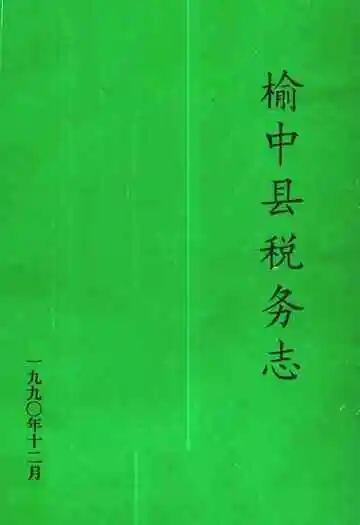 榆中县税务志
一九九〇年十二月